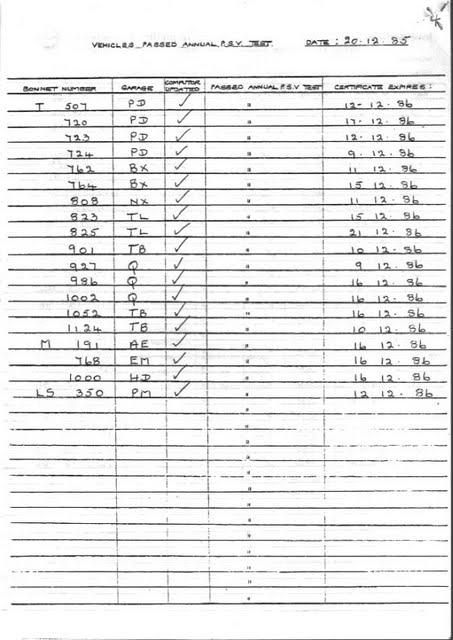 4
VEHICLES PASSED ANNUAL P.S.V. TEST. DATE : 20.12.85
BONNET NUMBER GARAGE COMPUTOR UPDATED PASSED ANNUAL P.S.V TEST CERTIFICATE EXPIRES:
T 507 PD ✓ " 12-12.86
720 PD ✓ " 17.12.86
723 PD ✓ " 12.12.86
724 PD ✓ " 9.12.86
762 BX ✓ " 11 12.86
764 BX ✓ " 15 12.86
808 NX ✓ " 11 12.86
823 TL ✓ " 15 12.86
825 TL ✓ " 21 12.86
901 TB ✓ " 10 12.86
927 Q ✓ " 9 12.86
986 Q ✓ " 16 12.86
1002 Q ✓ " 16 12.86
1052 TB ✓ " 16 12.86
1124 TB ✓ " 10 12.86
M 191 AE ✓ " 16 12.86
768 EM ✓ " 16 12.86
1000 HD ✓ " 16 12.86
LS 350 PM ✓ " 12 12.86
"
"
"
"
"
"
"
"
"
"
"